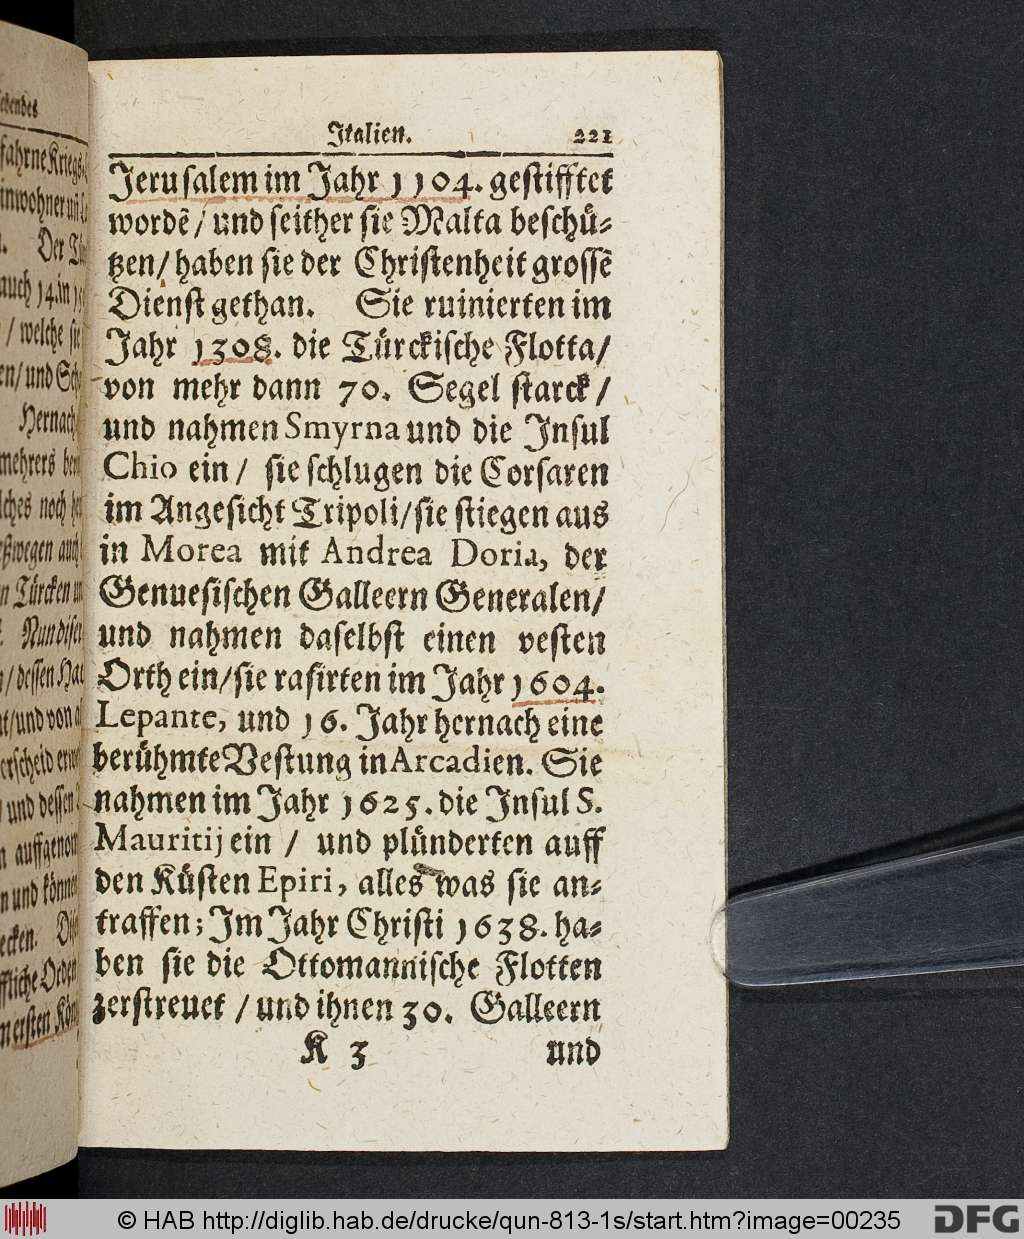 Italien. 221
Jerusalem im Jahr 1104. gestifftet
wordẽ / und seither sie Malta beschü-
tzen / haben sie der Christenheit grossẽ
Dienst gethan. Sie ruinierten im
Jahr 1308. die Türckische Flotta /
von mehr dann 70. Segel starck /
und nahmen Smyrna und die Insul
Chio ein / sie schlugen die Corsaren
im Angesicht Tripoli / sie stiegen aus
in Morea mit Andrea Doria, der
Genuesischen Galleern Generalen /
und nahmen daselbst einen vesten
Orth ein / sie rasirten im Jahr 1604.
Lepante, und 16. Jahr hernach eine
berühmte Vestung in Arcadien. Sie
nahmen im Jahr 1625. die Insul S.
Mauritij ein / und plünderten auff
den Küsten Epiri, alles was sie an-
traffen; Im Jahr Christi 1638. ha-
ben sie die Ottomannische Flotten
zerstreuet / und ihnen 30. Galleern
K 3 und
© HAB http://diglib.hab.de/drucke/qun-813-1s/start.htm?image=00235
DFG